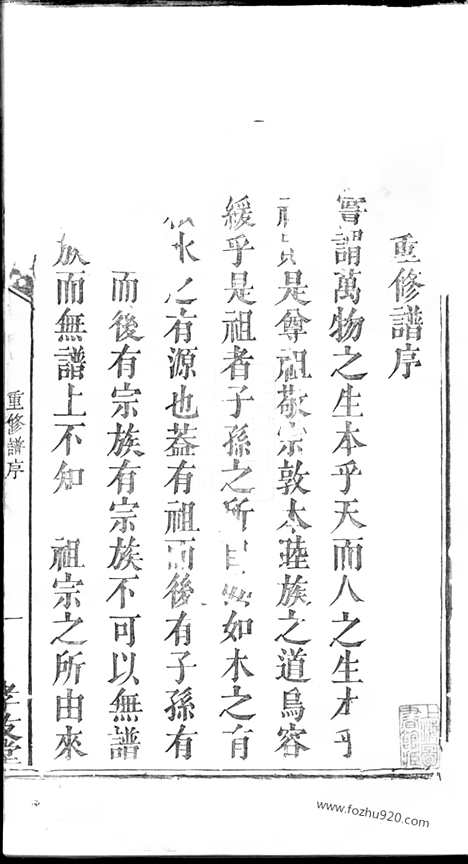 重修譜序
嘗謂萬物之生本乎天而人之生本乎
祖是尊祖敬宗敦本睦族之道烏容
緩乎是祖者子孫之所自如木之有
水之有源也葢有祖而後有子孫有
而後有宗族有宗族不可以無譜
族而無譜上不知 祖宗之所由來
重修譜序
一
孝友堂
www.fozhu920.com